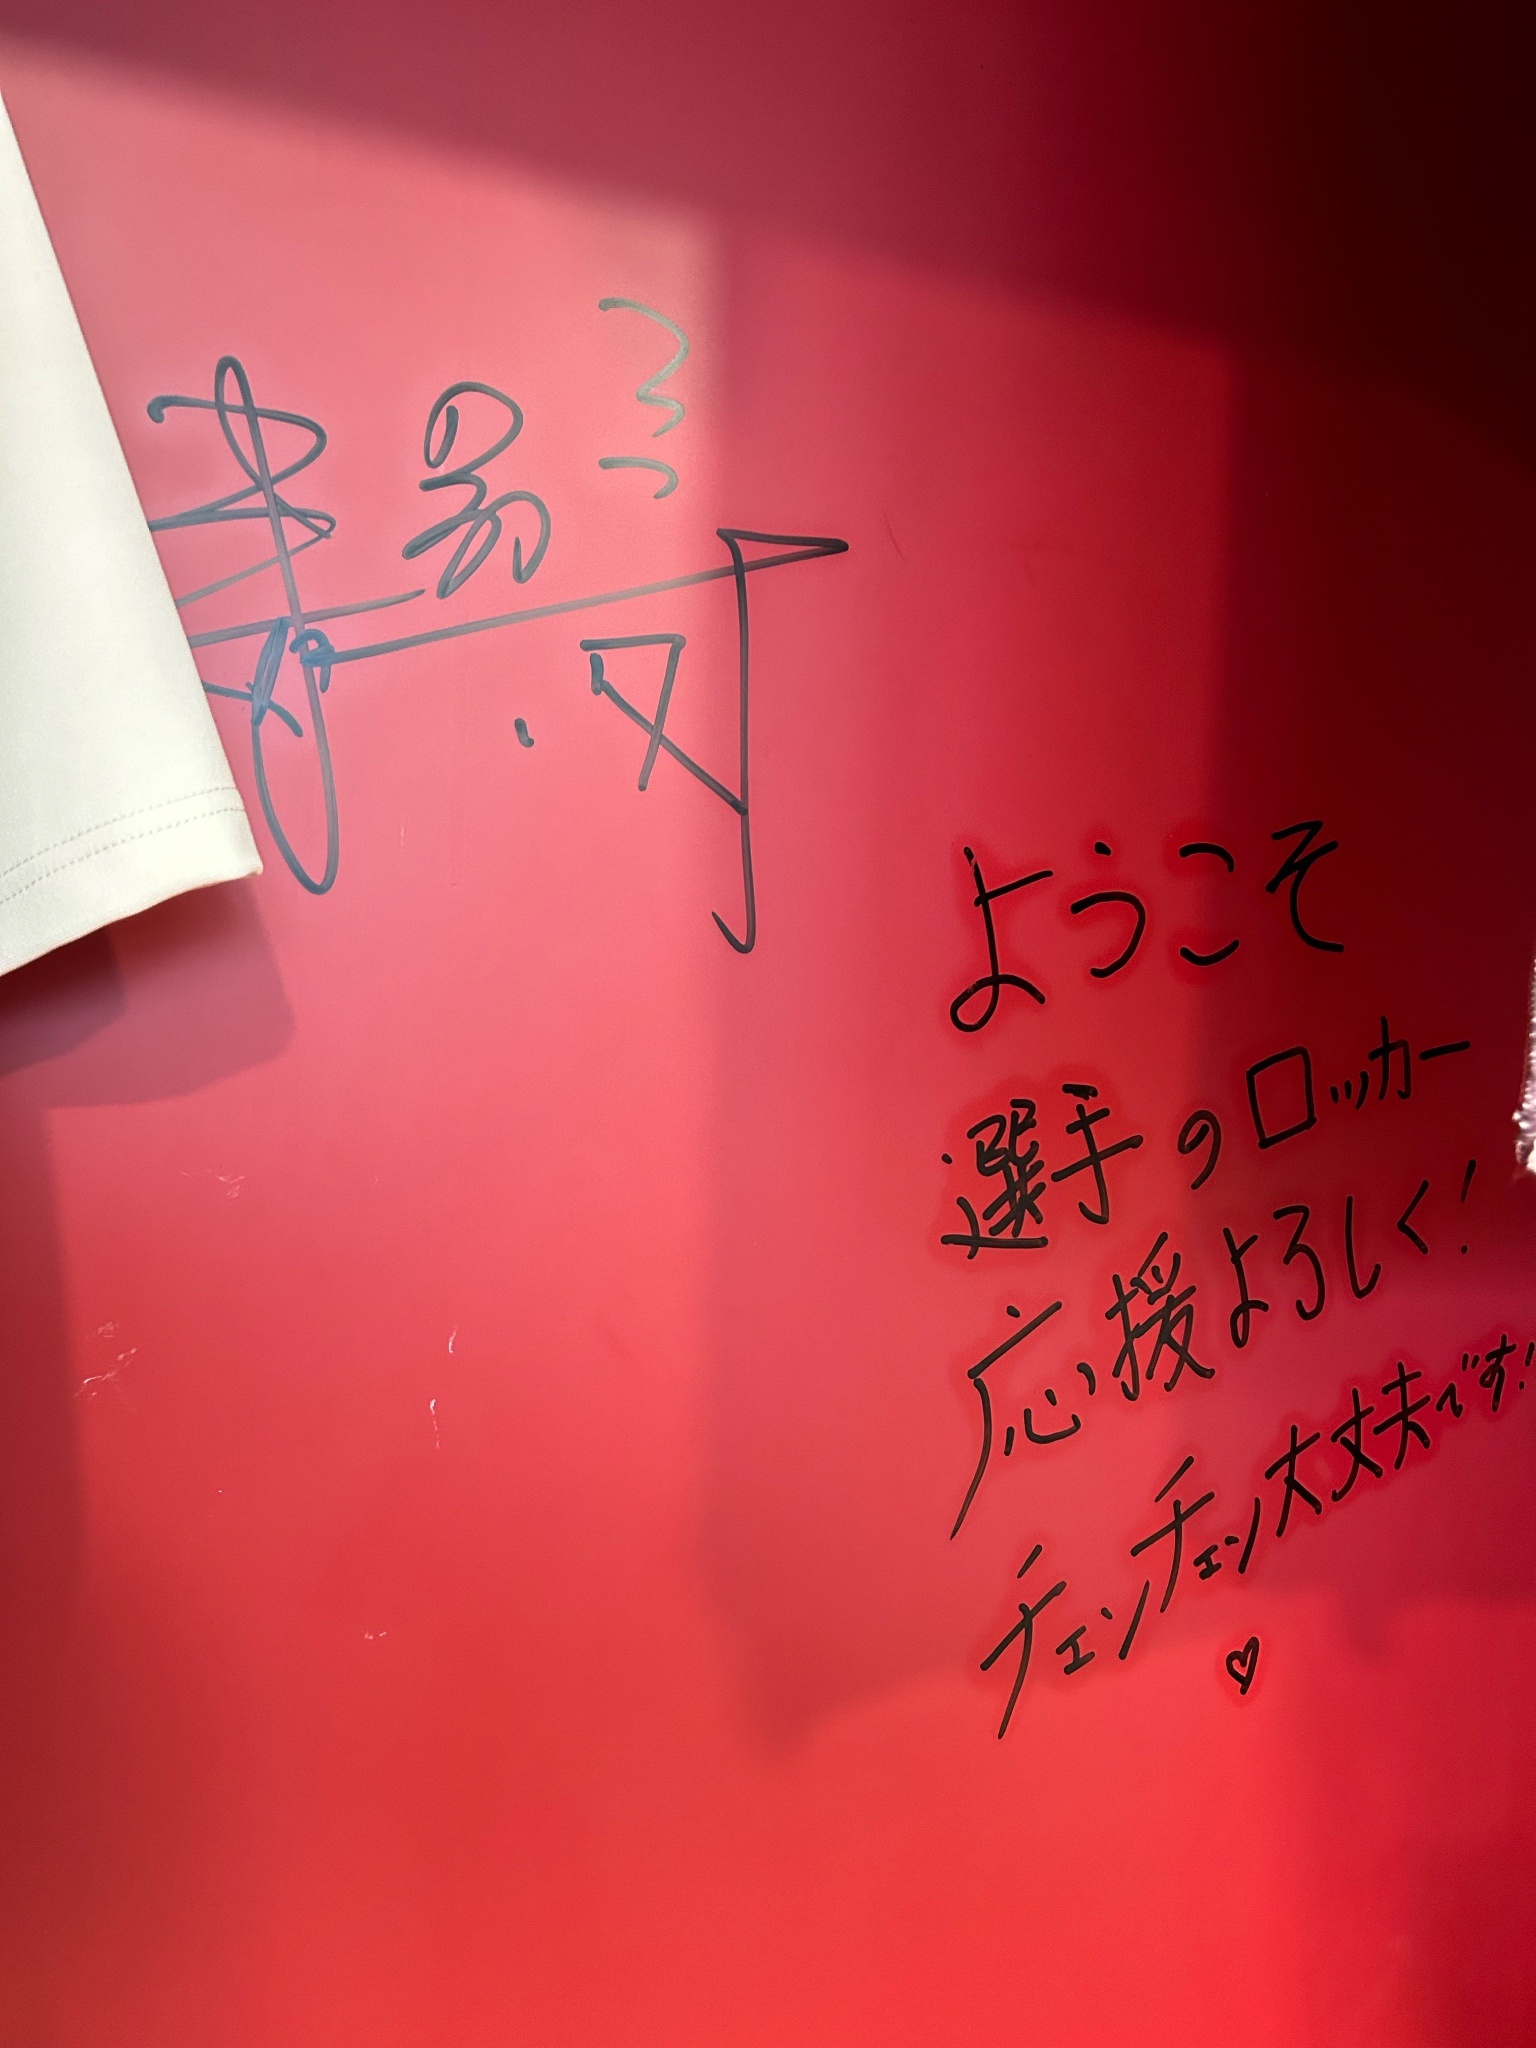 ようこそ
選手のロッカー
応援よろしく!
チェンチェン大丈夫です!